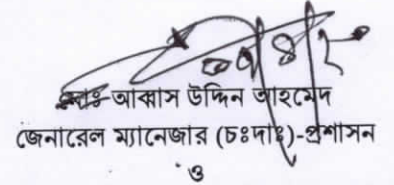 মোঃ আব্বাস উদ্দিন আহমেদ
জেনারেল ম্যানেজার (চঃদাঃ)-প্রশাসন
ও